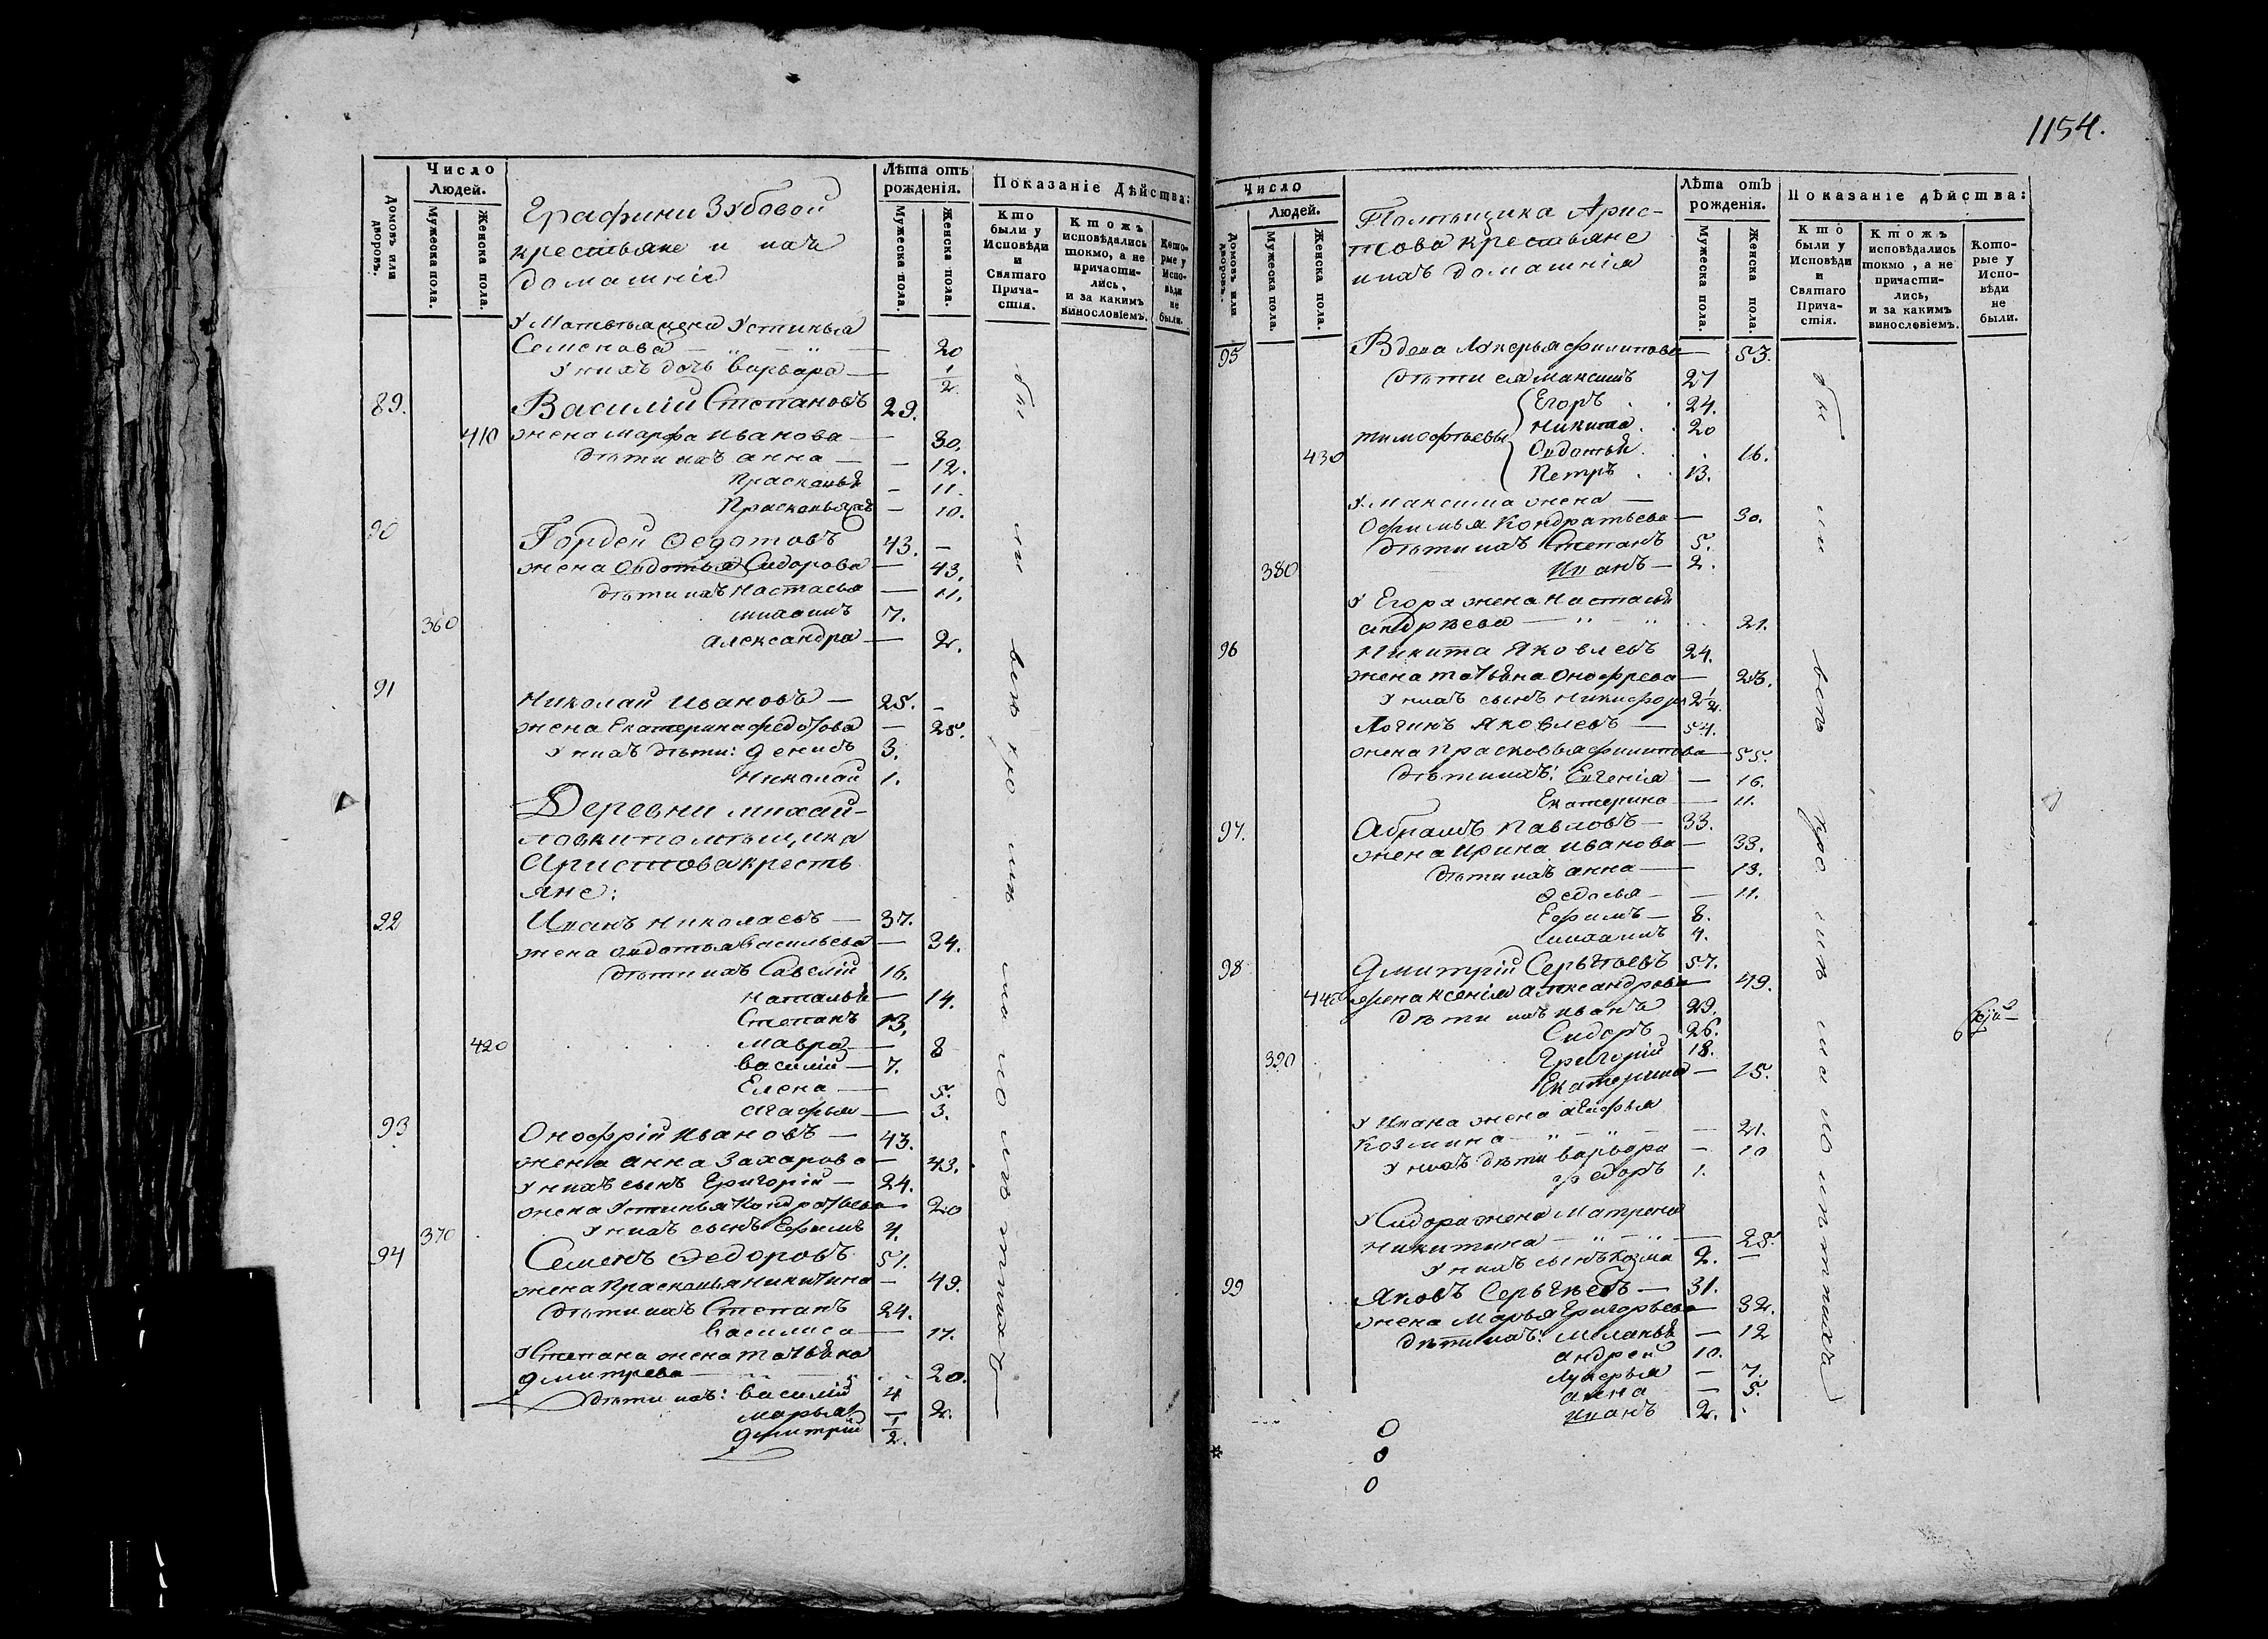 Число
Людей.
Домовъ или дворовъ.
Мужеска пола.
Женска пола.
Графини Зубовой
крестьяне и ихъ
домашніе
Лѣта отъ
рожденія.
Мужеска пола.
Женска пола.
Показаніе Дѣйства:
Кто были у Исповѣди и Святаго Причастія.
Ктожъ исповѣдались токмо, а не причастились, и за какимъ винословіемъ.
Которые у Исповѣди не были.
У Матвѣя жена Устинья
Семенова — 20
У нихъ дочь Варвара — 1/2
89. Василій Степановъ 29.
410 жена Марфа Иванова — 30.
дѣти ихъ Анна — 12.
Прасковья — 11.
Прасковья — 10.
90 Гордей Федотовъ 43. —
жена Авдотья Сидорова — 43.
дѣти ихъ Настасья — 11.
360 Михаилъ 7.
Александра — 2.
91 Николай Ивановъ — 25. —
жена Екатерина Федотова — 25.
У нихъ дѣти: Денисъ 3.
Николай 1.
Деревни Михай-
ловки помѣщика
Аристова кресть
яне:
92 Иванъ Николаевъ — 37.
жена Авдотья Васильева — 34.
дѣти ихъ Савелій 16.
Наталья — 14.
Степанъ 13.
420 Мавра — 8
Василій — 7.
Елена — 5.
Агафья — 3.
93 Онофрій Ивановъ — 43.
жена Анна Захарова — 43.
У нихъ сынъ Григорій — 24.
жена Устинья Кондратьева — 20
370 У нихъ сынъ Ефимъ 4.
94 Семенъ Федоровъ 51.
жена Прасковья Никитина — 49.
дѣти ихъ Степанъ 24.
Василиса — 17.
У Степана жена Татьяна
Дмитрева — 20.
дѣти ихъ: Василій 4
Марья — 2.
Дмитрій 1/2.
бы ли всѣ
1154.
Число
Людей.
Домовъ или дворовъ.
Мужеска пола.
Женска пола.
Помѣщика Арис-
това крестьяне
и ихъ домашнія
Лѣта отъ
рожденія.
Мужеска пола.
Женска пола.
Показаніе дѣйства:
Кто были у Исповѣди и Святаго Причастія.
Ктожъ исповѣдались токмо, а не причастились, и за какимъ винословіемъ.
Которые у Исповѣди не были.
95 Вдова Лукерья Филипова — 53.
дѣти ея Максимъ 27
Егоръ 24.
Тимофѣевы Никита 20
430 Авдотья 16.
Петръ 13.
У Максима жена —
Офимья Кондратьева — 30.
дѣти ихъ Степанъ 5.
380 Иванъ — 2.
У Егора жена Настасья
Андрѣева — 21.
96 Никита Яковлевъ 24.
жена Татьяна Онофрева — 23.
У нихъ сынъ Никифоръ 2 1/2.
Логинъ Яковлевъ — 54.
жена Прасковья Филипова — 55.
дѣти ихъ: Евгенія — 16.
Екатерина — 11.
97. Абрамъ Павловъ — 33.
жена Ирина Иванова — 33.
дѣти ихъ Анна — 13.
Федосья — 11.
Ефимъ — 8.
Михаилъ 4.
98 Дмитрій Сергѣевъ 57.
440 жена Ксенія Александрова — 49.
дѣти ихъ Иванъ 29.
Сидоръ 26.
390 Григорій 18.
Екатерина — 15.
У Ивана жена Агафья
Козмина — 21.
У нихъ дѣти Варвара — 10
Федоръ 1.
У Сидора жена Матрена
Никитина — 25.
У нихъ сынъ Козма 2. —
99 Яковъ Сергѣевъ — 31.
жена Марья Григорьева — 32.
дѣти ихъ: Маланья — 12
Андрей 10.
Лукерья — 7.
Анна — 5.
Иванъ 2.
бы ли всѣ